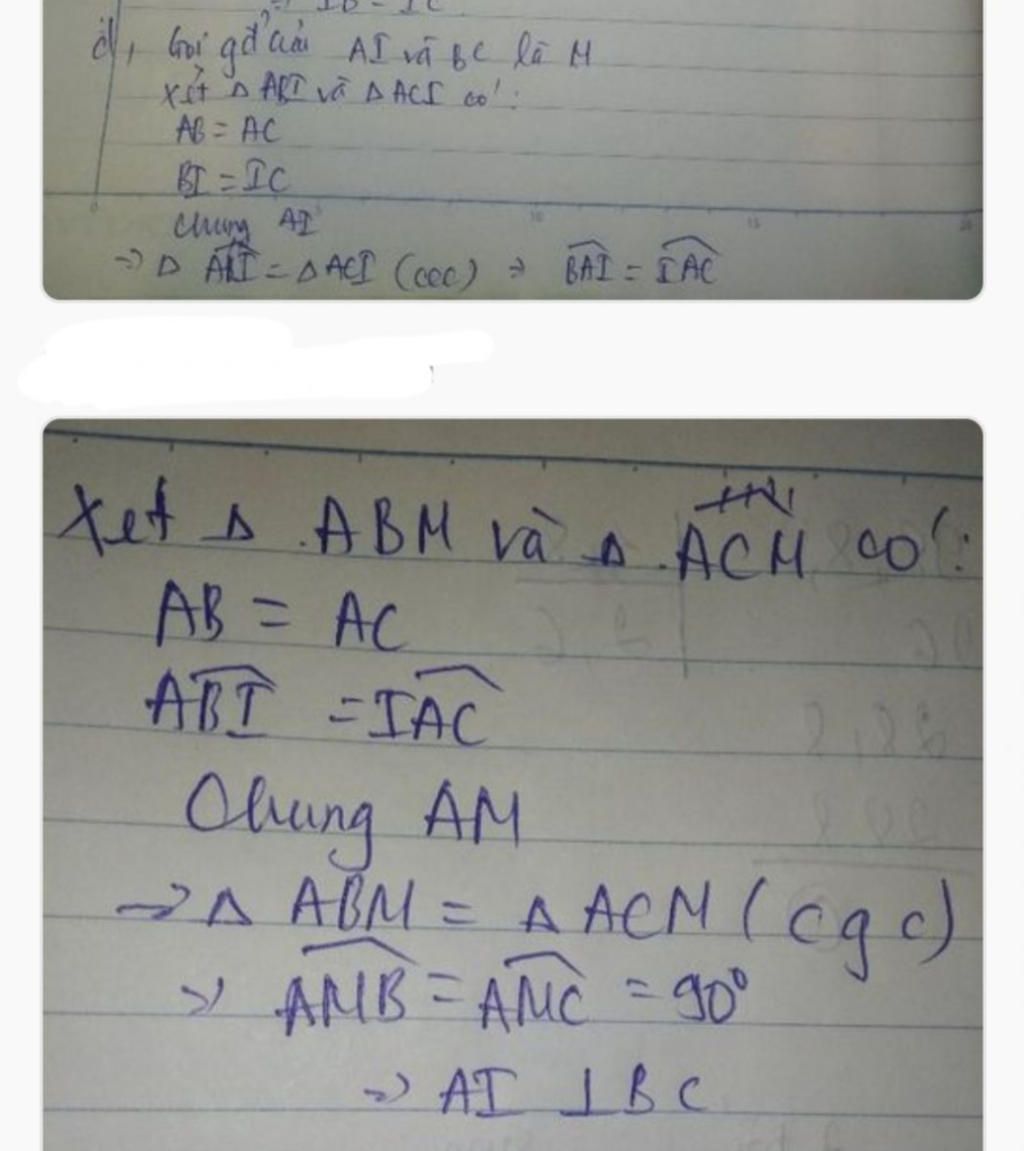 ⇒ IB = IC
d, Gọi gđ của AI và BC là M
Xét Δ ABI và Δ ACI có:
AB = AC
BI = IC
Chung AI
⇒ Δ ABI = Δ ACI (ccc) ⇒ BAI = IAC
Xét Δ ABM và Δ ACM có:
AB = AC
ABI = IAC
Chung AM
→ Δ ABM = Δ ACM (cgc)
⇒ AMB = AMC = 90°
⇒ AI ⊥ BC